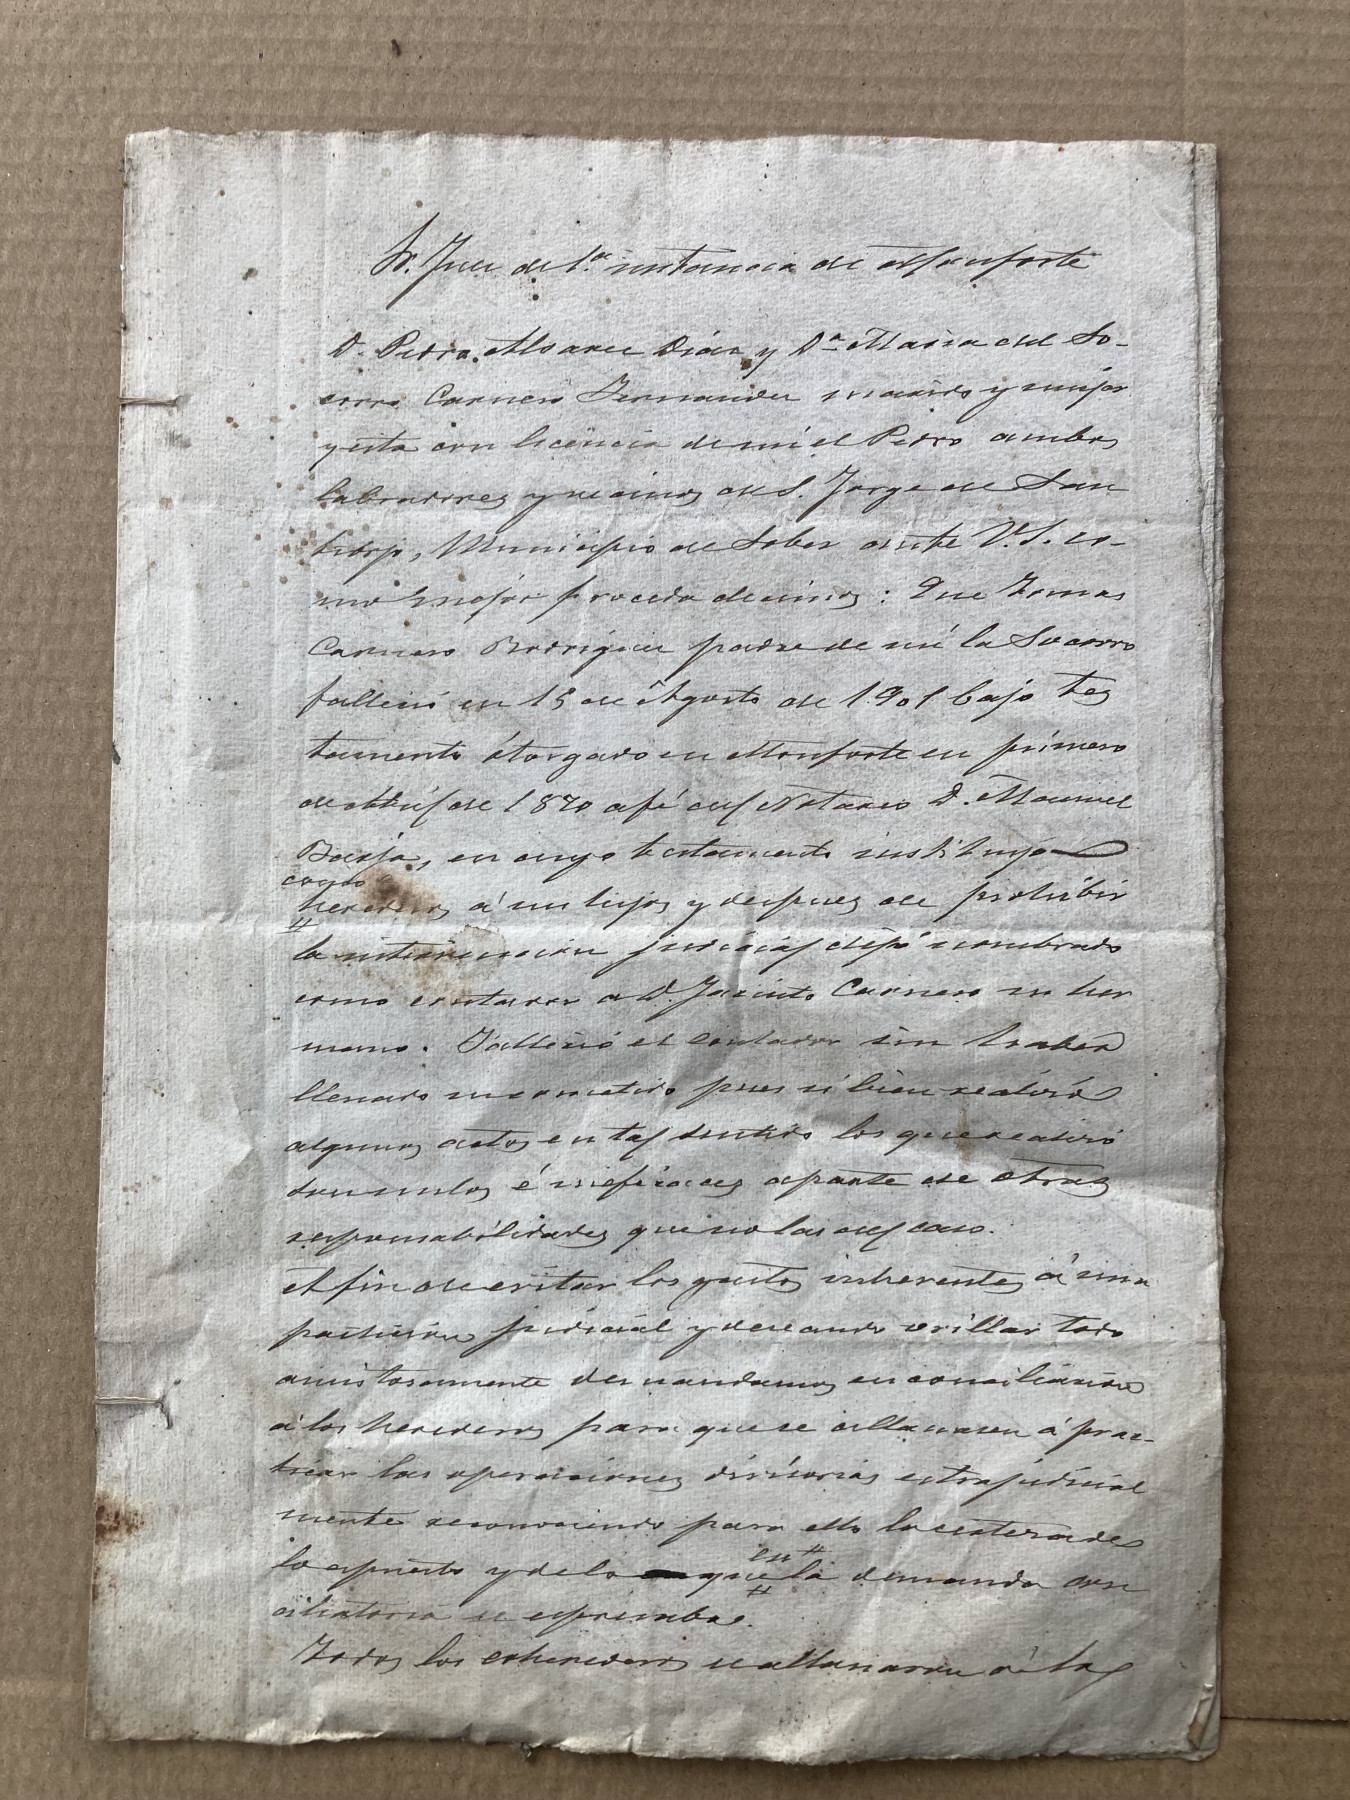 Sr. Juez de 1.ª instancia de Monforte
D. Pedro Alvarez Diáz y Dª Maria del So-
corro Carnero Fernandez marido y mujer
y esta con licencia de mi el Pedro ambos
labradores y vecinos de S. Jorge de San
tiorjo, Municipio de Sober ante V. S. co-
mo mejor proceda decimos: Que Tomas
Carnero Rodriguez padre de mi la Socorro
falleció en 15 de Agosto de 1.901 bajo tes
tamento otorgado en Monforte en primero
de Abril de 1870 a fé del Notario D. Manuel
en cuyo testamento instituyó
como
herederos á sus hijos y despues de prohibir
la intervencion judicial dejó nombrado
como contador a D. Jacinto Carnero su her
mano. Falleció el contador sin haber
llenado su cometido pues si bien realizó
algunos actos en tal sentido los que realizó
son nulos é ineficaces aparte de otras
responsabilidades que no las del caso.
A fin de evitar los gastos inherentes á una
particion judicial y deseando orillar todo
amistosamente demandamos en conciliacion
á los herederos para que se allanasen á prac-
ticar las operaciones divisorias extrajudicial
mente reconociendo para ello la certeza de
en #
lo espuesto y de lo que la demanda con
ciliatoria se espresaba.
Todos los coherederos se allanaron á la